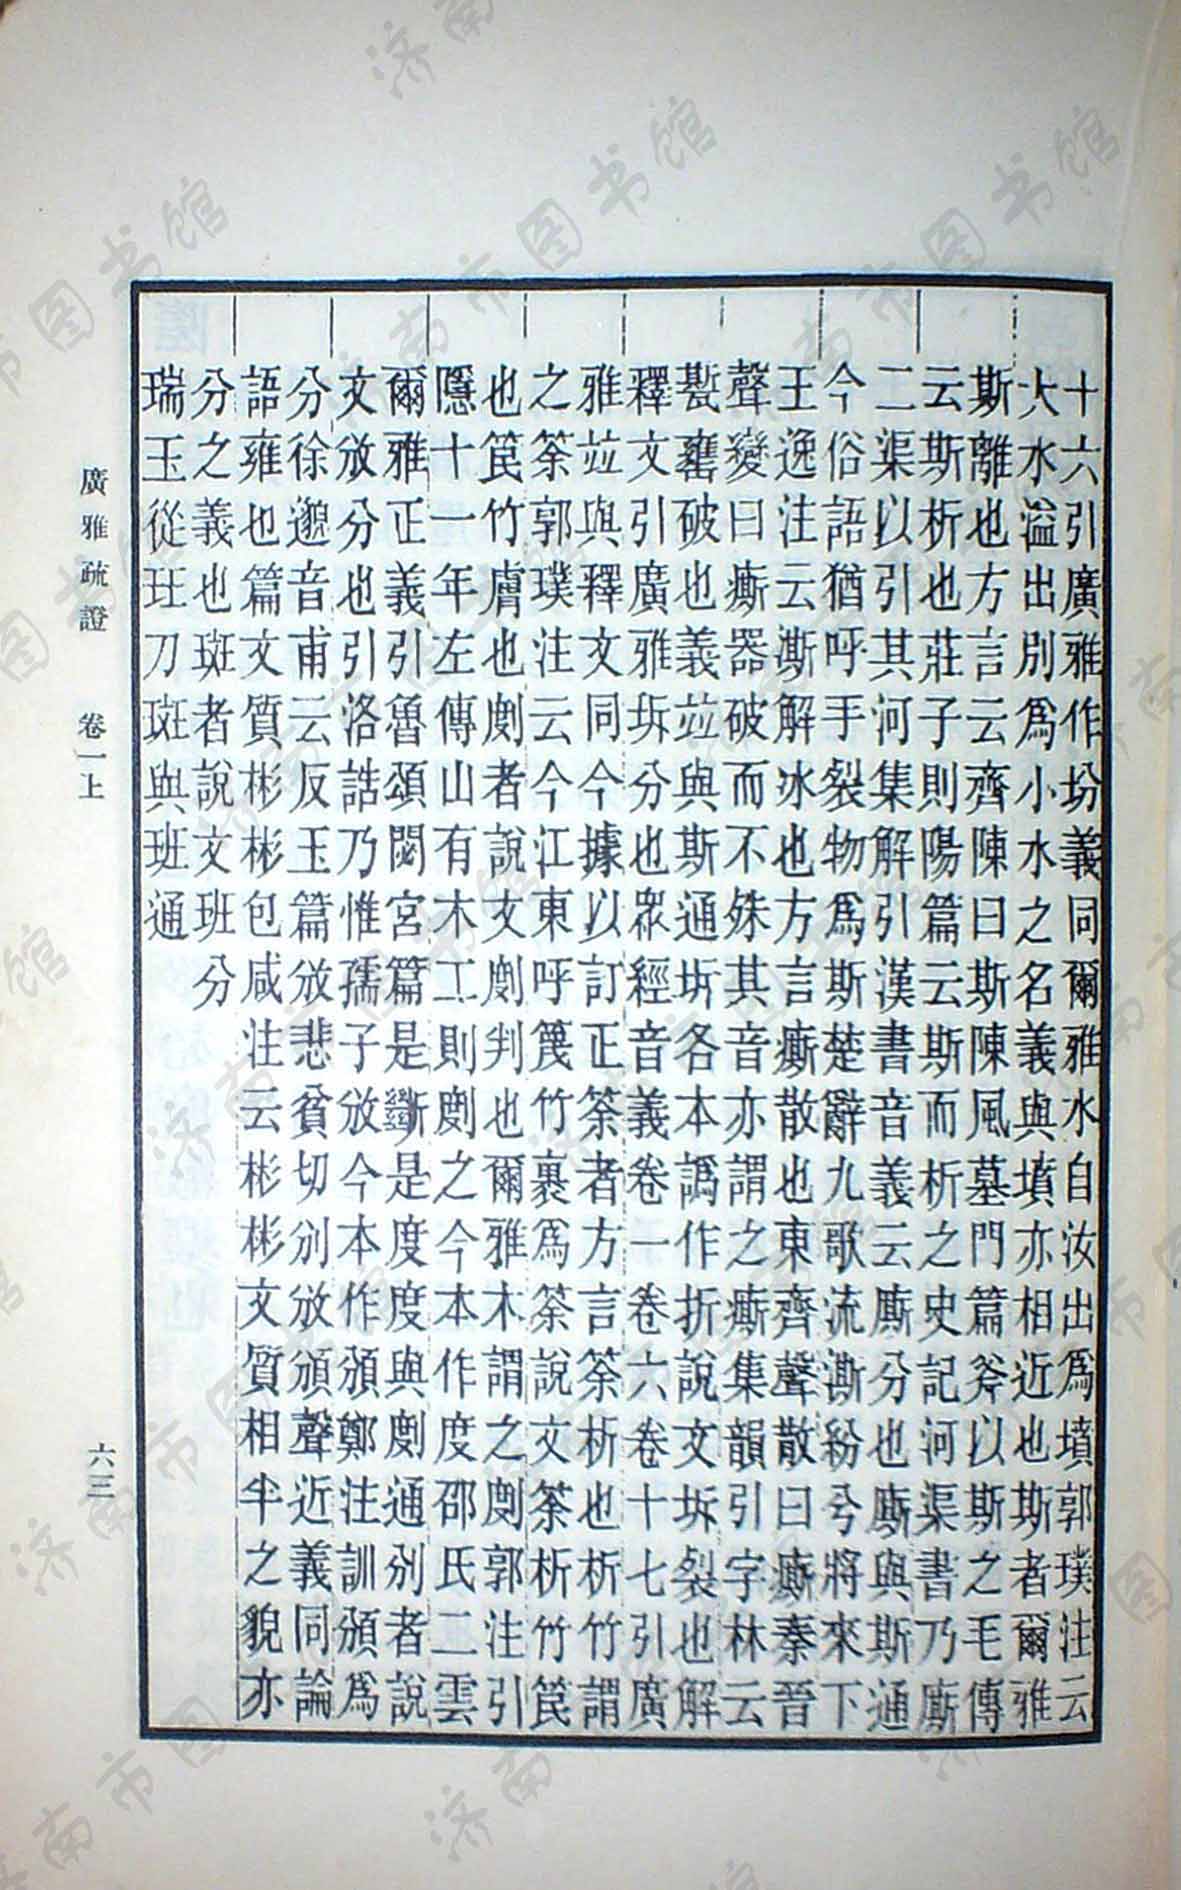 十六引廣雅作坋義同爾雅水自汝出爲墳郭璞注云
大水溢出別爲小水之名義與墳亦相近也斯者爾雅
斯離也方言云齊陳曰斯陳風墓門篇斧以斯之毛傳
云斯析也莊子則陽篇云斯而析之史記河渠書乃廝
二渠以引其河集解引漢書音義云廝分也廝與斯通
今俗語猶呼手裂物爲斯楚辭九歌流澌紛兮將來下
王逸注云澌解冰也方言廝散也東齊聲散曰廝秦晉
聲變曰廝器破而不殊其音亦謂之廝集韻引字林云
甏𦉢破也義竝與斯通坼各本譌作折說文坼裂也解
釋文引廣雅坼分也眾經音義卷一卷六卷十七引廣
雅竝與釋文同今據以訂正筡者方言筡析也析竹謂
之筡郭璞注云今江東呼篾竹裏爲筡說文筡析竹笢
也笢竹膚也劇者說文劇判也爾雅木謂之劇郭注引
隱十一年左傳山有木工則劇之今本作度邵氏二雲
爾雅正義引魯頌閟宮篇是斷是度度與劇通別者說
文攽分也引洛誥乃惟孺子攽今本作頒鄭注訓頒爲
分徐邈音甫云反玉篇攽悲貧切別攽頒聲近義同論
語雍也篇文質彬彬包咸注云彬彬文質相半之貌亦
分之義也斑者說文班分
瑞玉從玨刀斑與班通
廣雅疏證　卷一上
六三